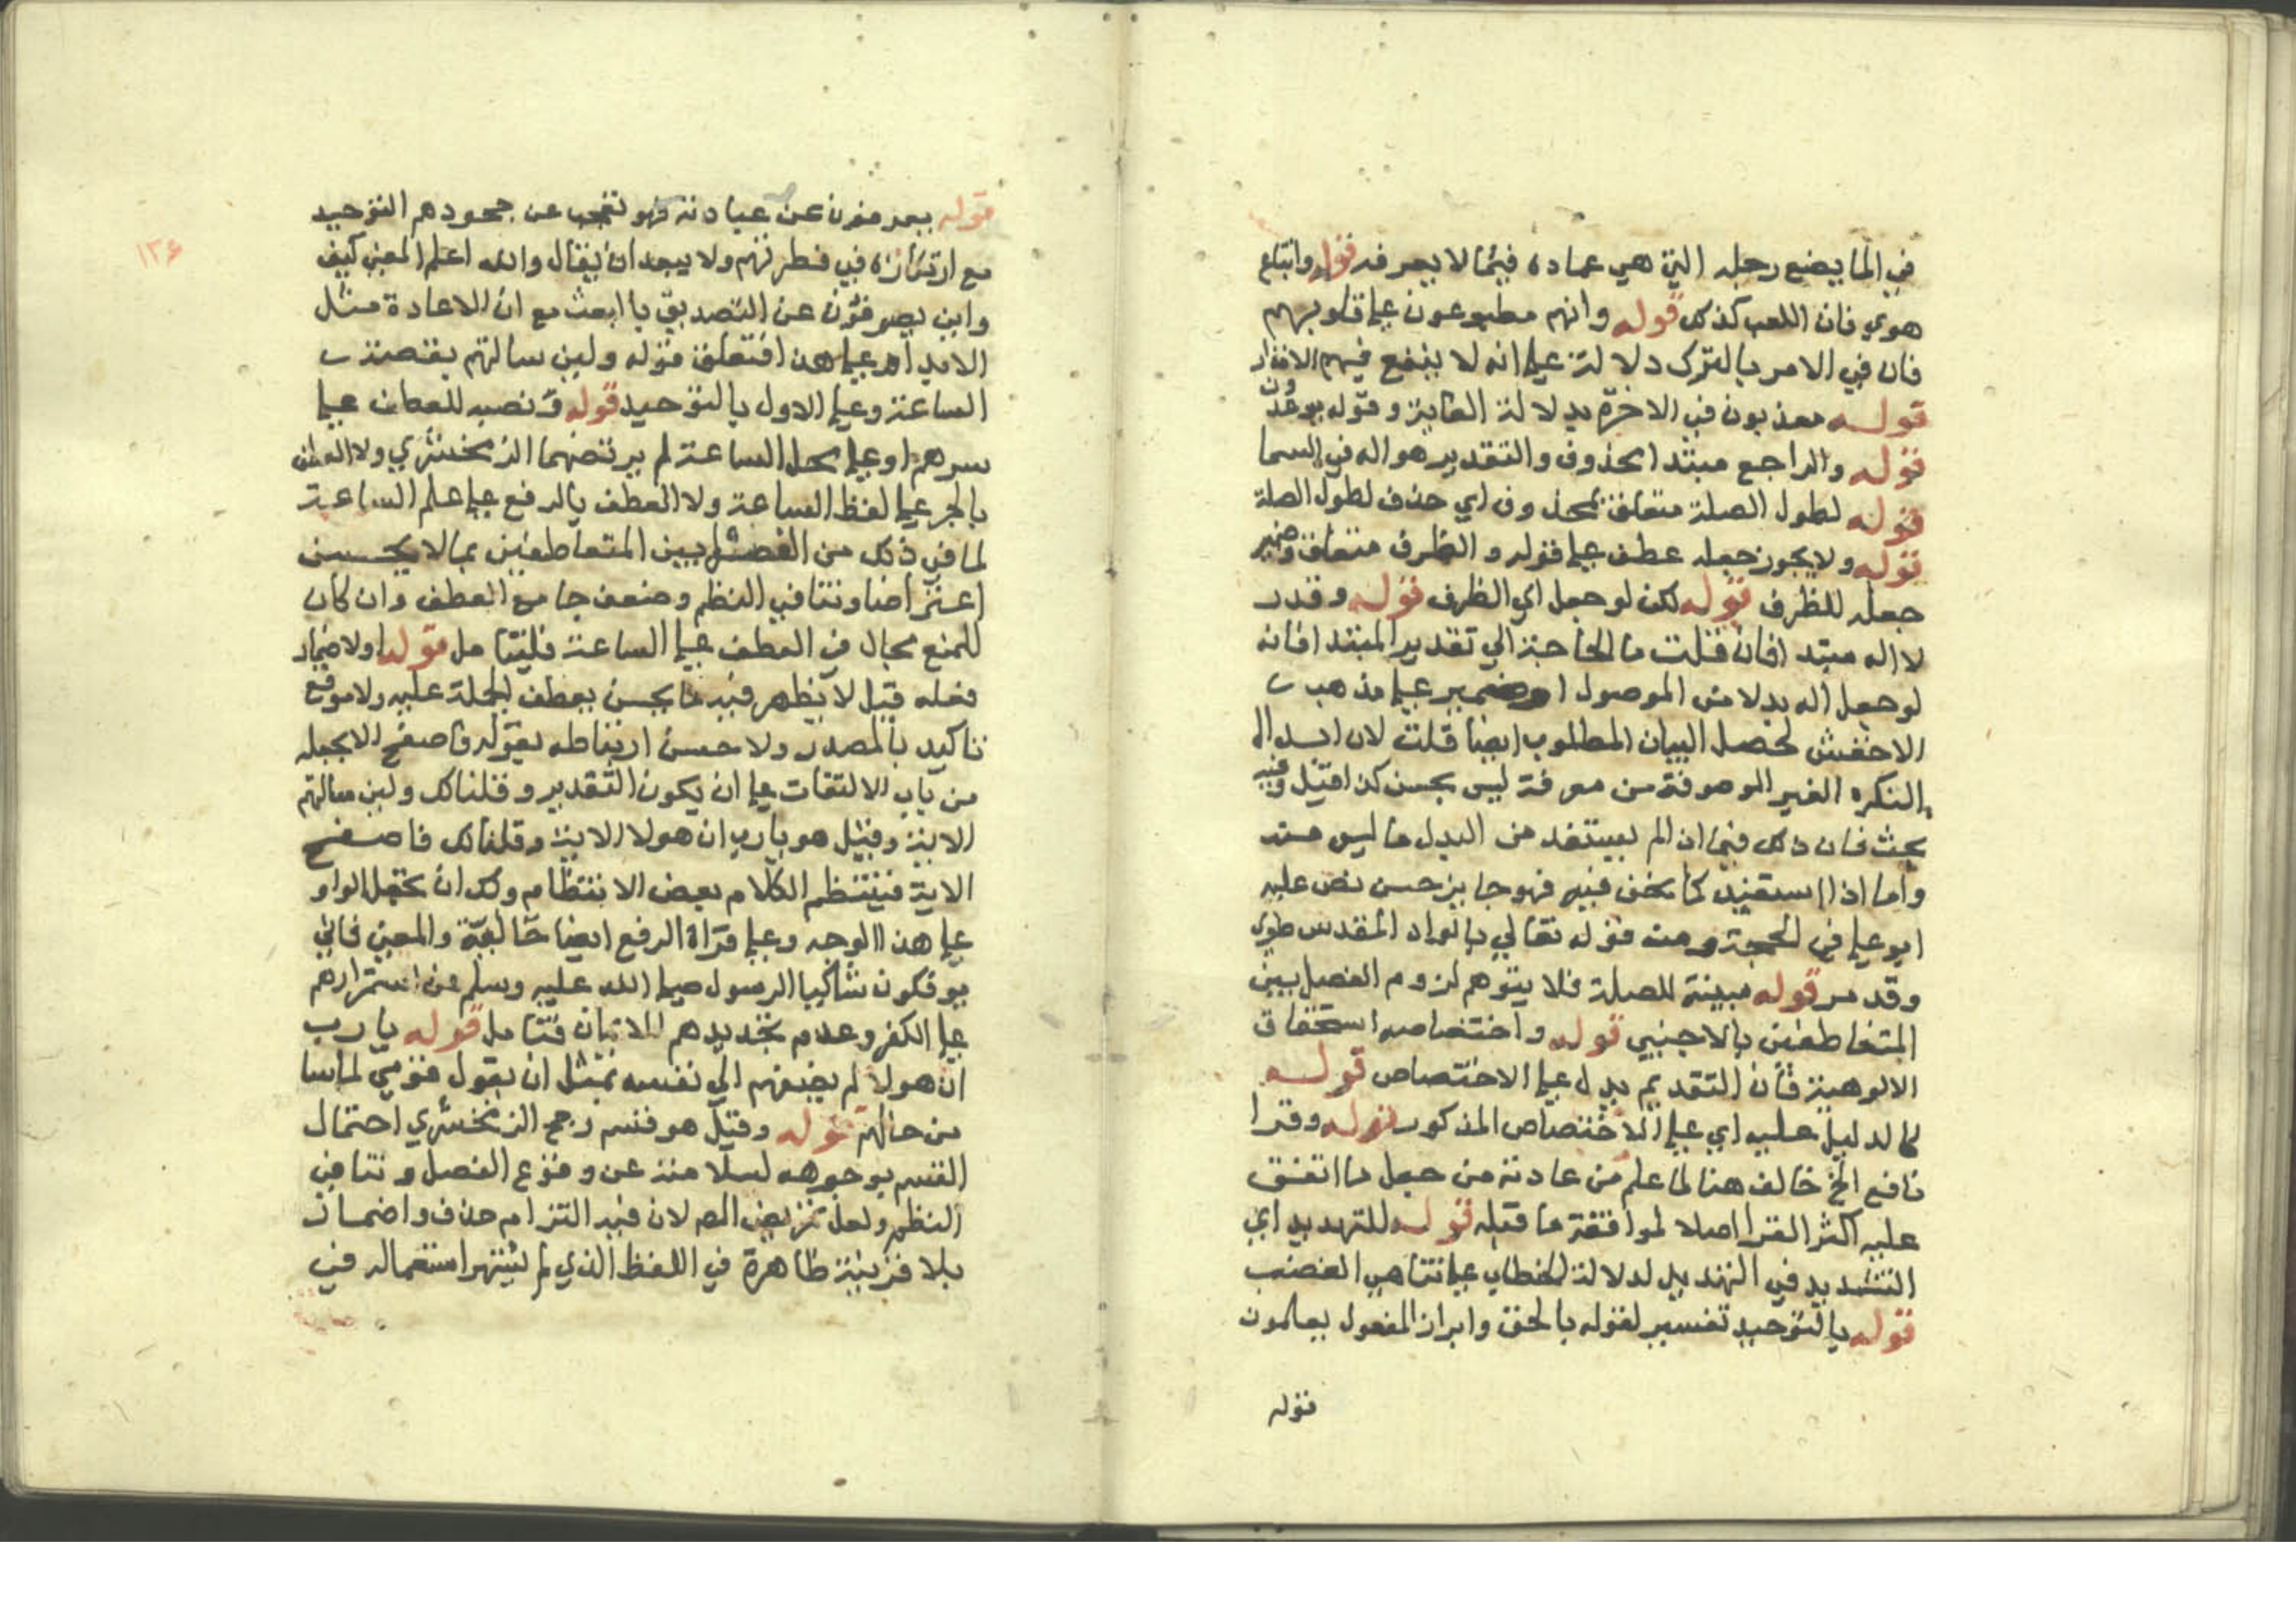 في الما يضع رجله التي هي عماده فيما لا يعرفه قوله واتباع
هوي فان اللعب كذلك قوله وانهم مطبوعون علي قلوبهم
فان في الامر بالترك دلالة علي انه لا ينفع فيهم الانذار
قوله معذبون في الاخرة بدلالة الغاية وقوله يوعدون
قوله والراجع مبتدا محذوف والتقدير هو اله في السما
قوله لطول الصلة متعلق بمحذوف اي حذف لطول الصلة
قوله ولا يجوز جعله عطف علي قوله والظرف متعلق وضمير
جعله للظرف قوله لكن لو جعل اي الظرف قوله وقدر
لا اله مبتدا فان قلت ما الحاجة الي تقدير المبتدا فانه
لو جعل اله بدلا من الموصول او ضمير علي مذهب
الاخفش لحصل البيان المطلوب ايضا قلت لان ابدال
النكره الغير الموصوفة من معرفة ليس بحسن كذا قيل وفيه
بحث فان ذلك فيما اذا لم يستفد من البدل ما ليس منه
واما اذا استفيد كما نحن فيه فهو جايز حسن نص عليه
ابو علي في الحجة ومنه قوله تعالي بالواد المقدس طوي
وقد مر قوله مبينة للصلة فلا يتوهم لزوم الفصل بين
المتعاطفين بالاجنبي قوله واختصاصه استحقاق
الالوهية فان التقديم يدل علي الاختصاص قوله
كالدليل عليه اي علي الاختصاص المذكور قوله وقرا
نافع الخ خالف هنا لما علم من عادته من جعل ما اتفق
عليه اكثر القرا اصلا لموافقة ما قبله قوله للتهديد اي
التشديد في التهديد لدلالة الخطاب علي تناهي الغضب
قوله بالتوحيد تفسير لقوله بالحق وابراز المفعول يعلمون
قوله
قوله يصرفون عن عبادته فهو تعجب عن جحودهم التوحيد
مع ارتكازه في فطرتهم ولا يبعد ان يقال والله اعلم المعني كيف
واين يصرفون عن التصديق بالبعث مع ان الاعادة مثل
الابدا وعلي هذا فتعلق قوله ولين سالتهم بقصة
الساعة وعلي الاول بالتوحيد قوله ونصبه للعطف علي
سرهم او علي محل الساعة لم يرتضهما الزمخشري ولا العطف
بالجر علي لفظ الساعة ولا العطف بالرفع علي علم الساعة
لما في ذلك من الفصل بين المتعاطفين بما لا يحسن
اعتراضا وتنافي النظم وضعف جامع العطف وان كان
للمنع مجال في العطف علي الساعة فليتامل قوله او لاضمار
فعله قيل لا يظهر فيه ما يحسن بعطف الجملة عليه ولا موقع
تاكيد بالمصدر ولا حسن ارتباطه بقوله فاصفح الا بجعله
من باب الالتفات علي ان يكون التقدير وقلنا لك ولين سالتهم
الاية وقيل هو يارب ان هولا الاية وقلنا لك فاصفح
الاية فينتظم الكلام بعض الانتظام ولك ان تجعل الواو
علي هذا الوجه وعلي قراة الرفع ايضا حالية والمعني فاني
يوفكون شاكيا الرسول صلي الله عليه وسلم من استمرارهم
علي الكفر وعدم للايمان فتامل قوله يارب
ان هولا لم يضفهم الي نفسه بمثل ان يقول قومي لما سا
من حالهم قوله وقيل هو قسم رجح الزمخشري احتمال
القسم بوجوهه لسلامته عن وقوع الفصل وتنافي
النظم ولعل تمريض المص لان فيه التزام حذف واضمار
بلا قرينة ظاهرة في اللفظ الذي لم يشتهر استعماله في
١٣٤